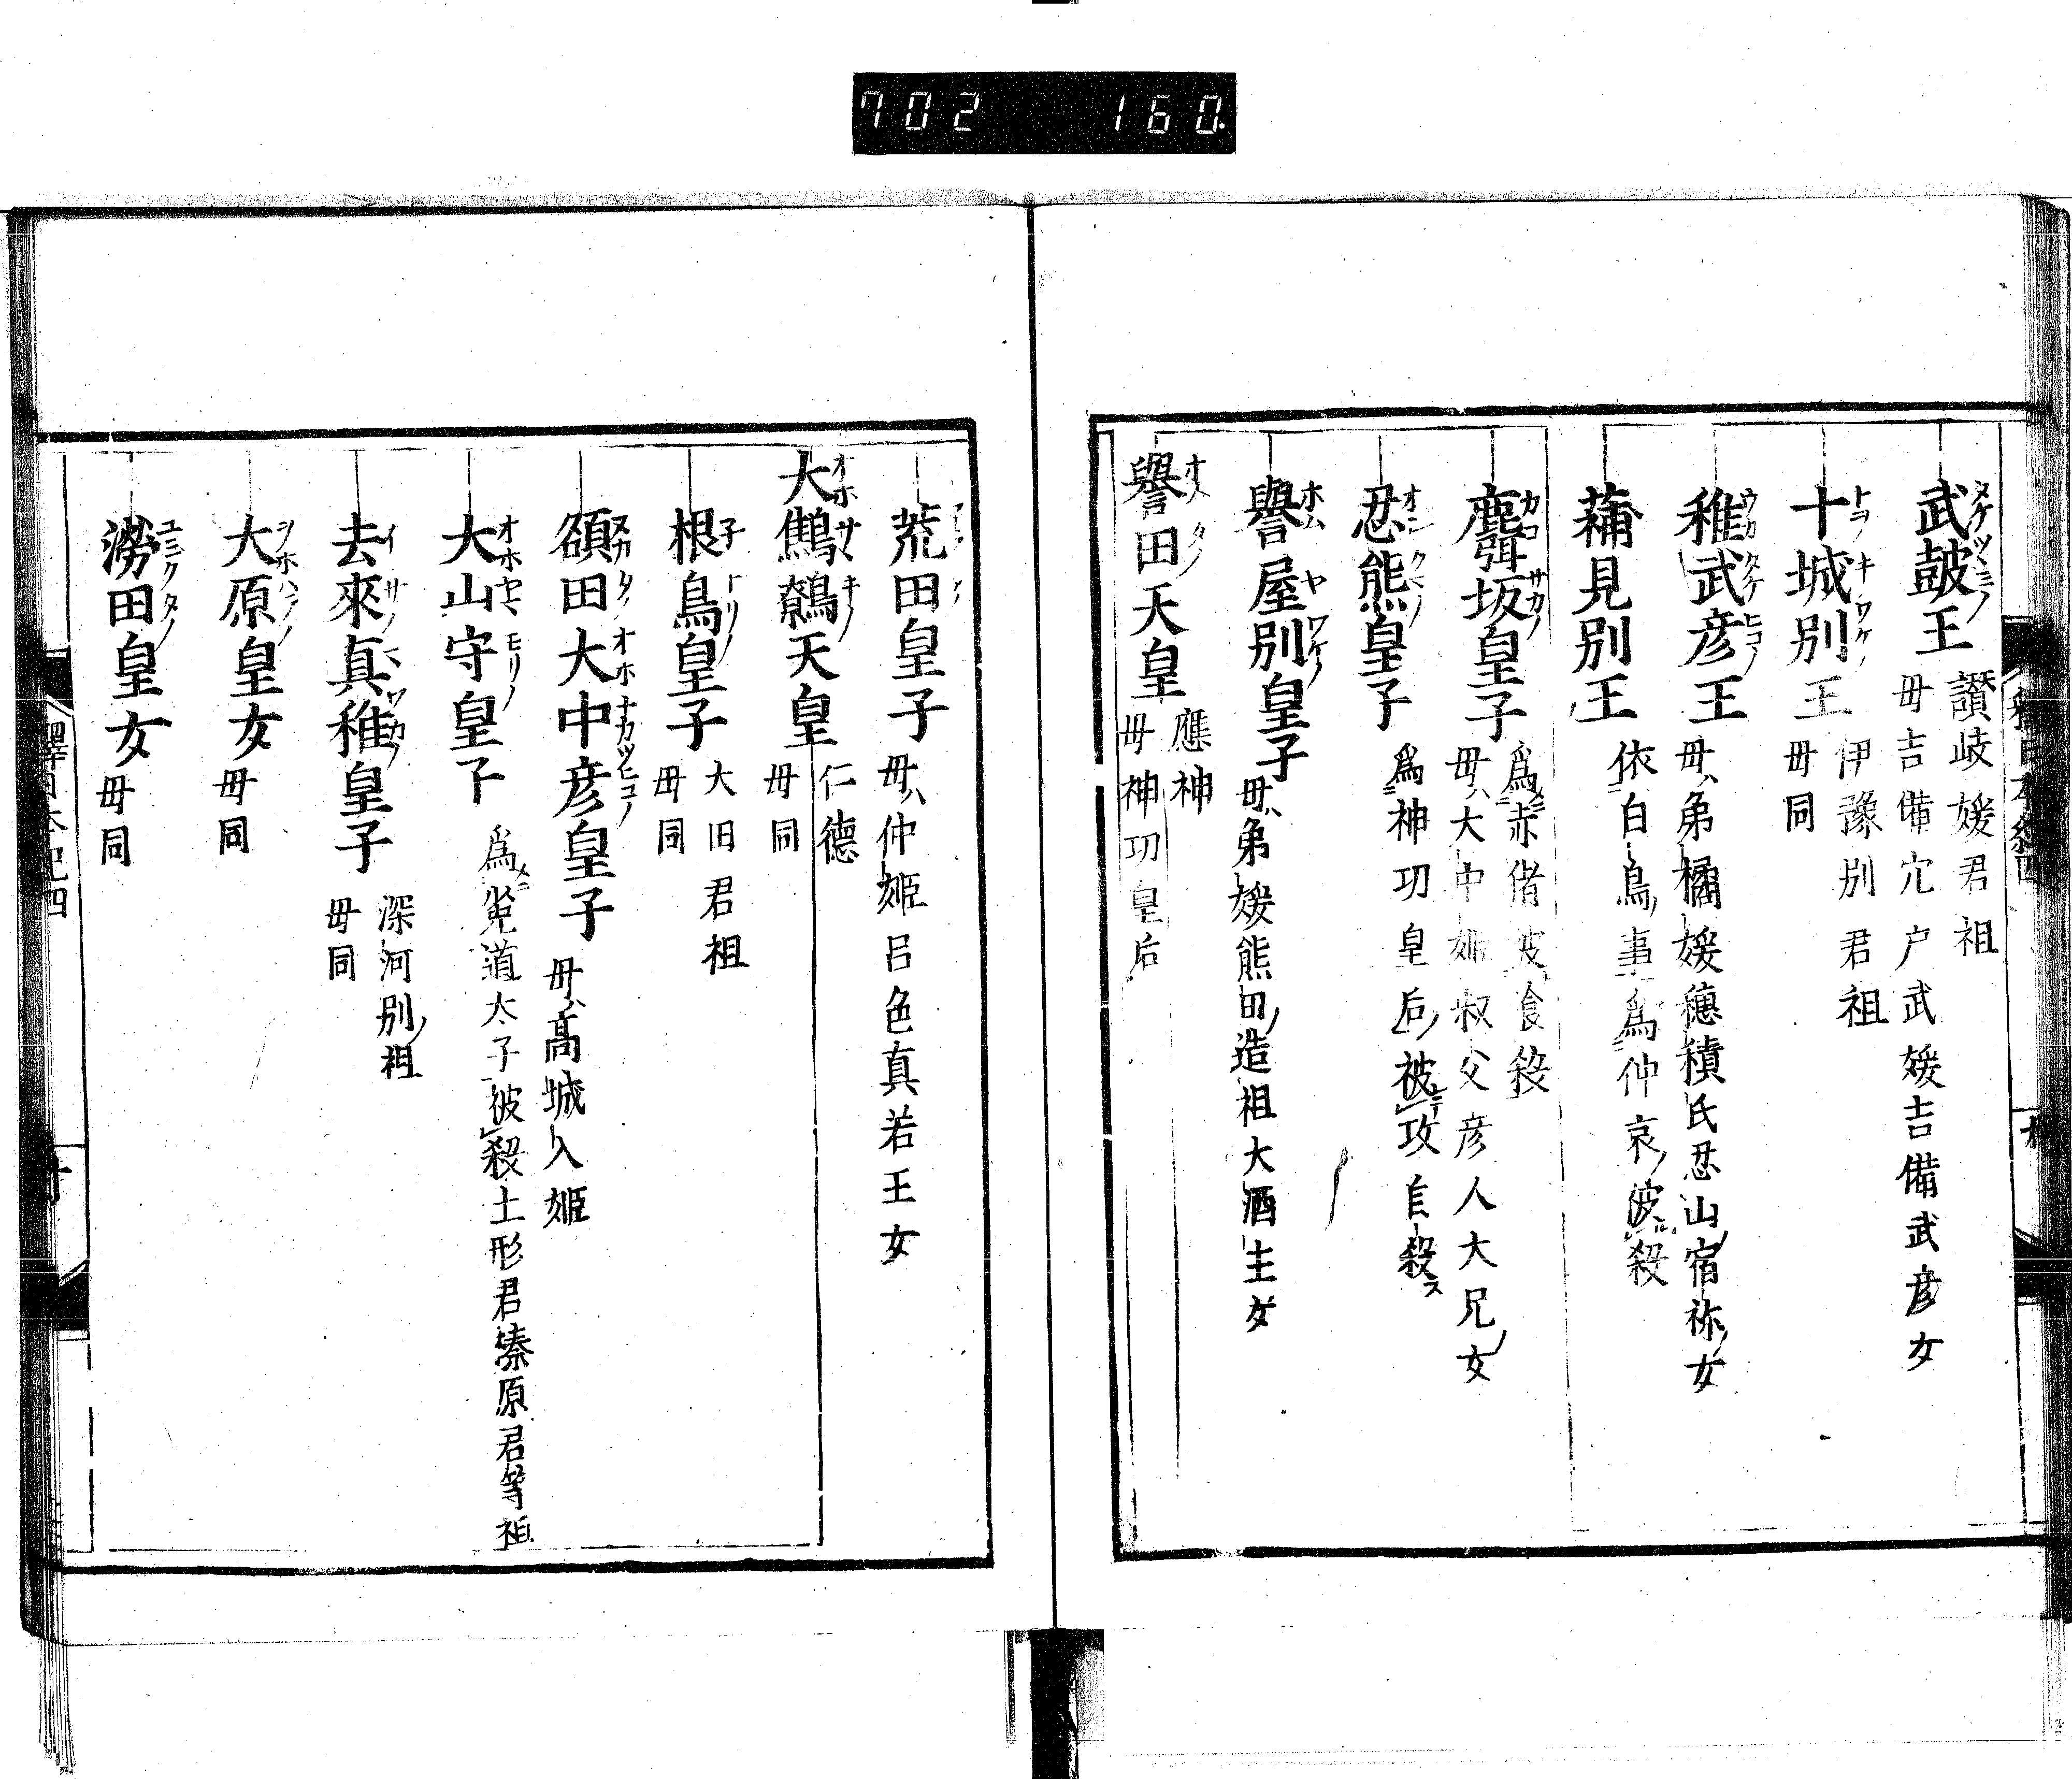 702 160.
武皷王
讃岐媛君祖
毋吉備宂戸武媛吉備武彦女
十城別王
伊豫別君祖
毋同
稚武彦王
毋ハ弟橘媛穂積氏忍山宿祢ノ女
蒲見別王
依白鳥事爲仲哀被殺
麛坂皇子
爲赤猪被食殺
毋ハ大中姫叔父彦人大兄ノ女
忍熊皇子
爲神功皇后被攻自殺ス
譽屋別皇子
毋ハ弟媛熊田造祖大酒主女
譽田天皇
應神
毋神功皇后
荒田皇子
毋ハ仲姫呂色真若王女
大鷦鷯天皇
仁徳
毋同
根鳥皇子
大田君祖
毋同
額田大中彦皇子
毋ハ髙城入姫
大山守皇子
爲菟道太子被殺土形君榛原君等祖
去來真稚皇子
深河別祖
毋同
大原皇女
毋同
澇田皇女
毋同
釋日本紀四